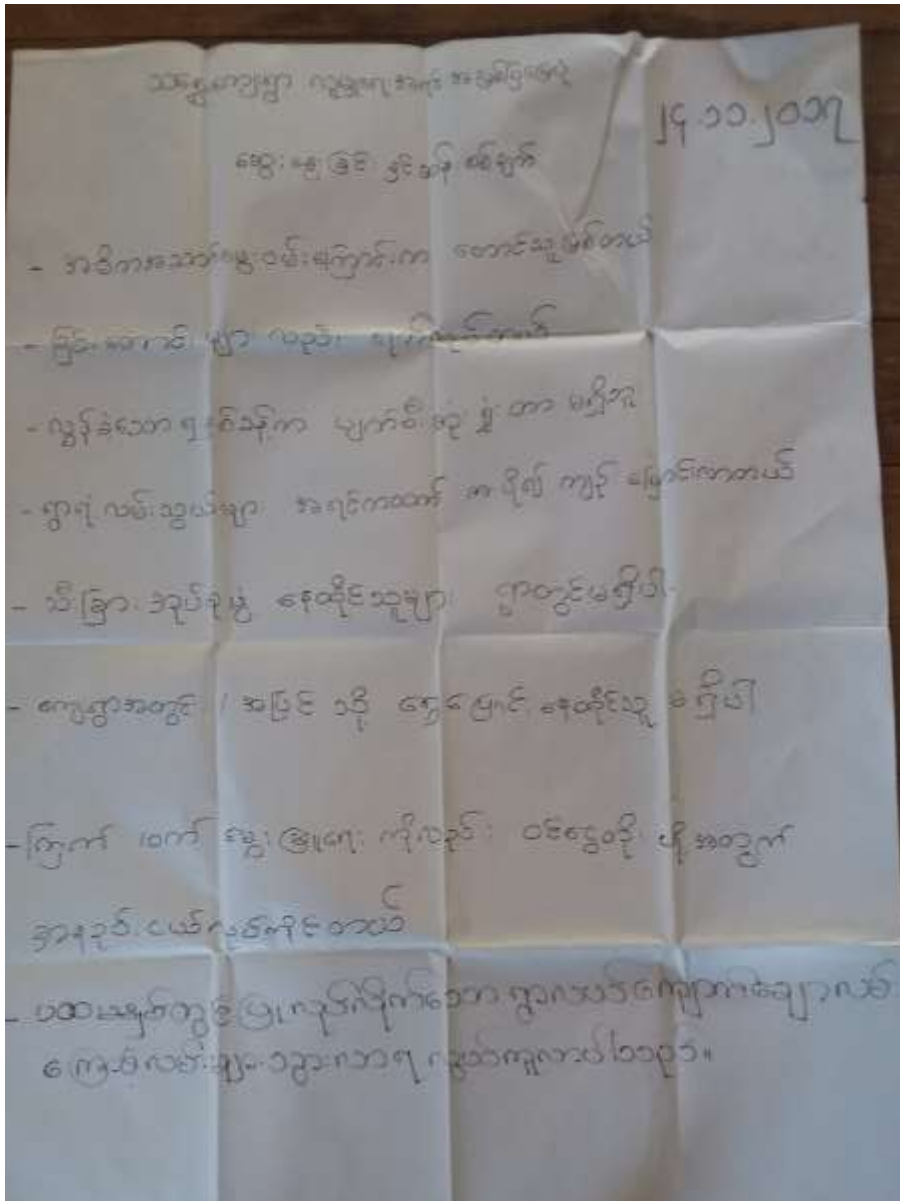 သရွှေကျေးရွာ လူမှုရေးအရင်းအနှီးပြမြေပုံ
၂၄.၁၁.၂၀၁၇
ဆွေးနွေးခြင်း နှင့်ဆန်းစစ်ချက်
- အဓိကအသက်မွေးဝမ်းကြောင်းက တောင်သူဖြစ်တယ်
- ခြင်းတောင်း များ လည်း ရက်လုပ်တယ်
- လွန်ခဲ့သော ၅ နှစ်ခန့်က ပျက်စီးဆုံးရှုံးတာ မရှိဘူး
- ရွာရဲ့လမ်းသွယ်များ အရင်ကထက် စာ ပို၍ ကျဉ်းမြောင်းလာတယ်
- သီးခြား အုပ်စုဖွဲ့ နေထိုင်သူများ ရွာတွင်မရှိပါ.
- ကျေးရွာအတွင်း / အပြင် သို့ ရွှေ့ပြောင်း နေထိုင်သူ မရှိပါ
- ကြက် ၊ဝက် မွေးမြူရေး ကိုလည်း ဝင်ငွေတိုး ဖို့အတွက်
အနည်းငယ်လုပ်ကိုင်တယ်
- ပထမနှစ်တွင် ပြုလုပ်လိုက်သော ရွာလယ်ကျောက်ချောလမ်း
ကြောင့် လမ်းများသွားလာရ လွယ်ကူလာပါသည်။